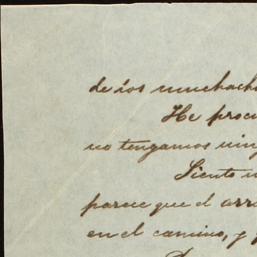 de los muchach
He procu
no tengamos ning
Siento
parece que el arr
en el camino, y